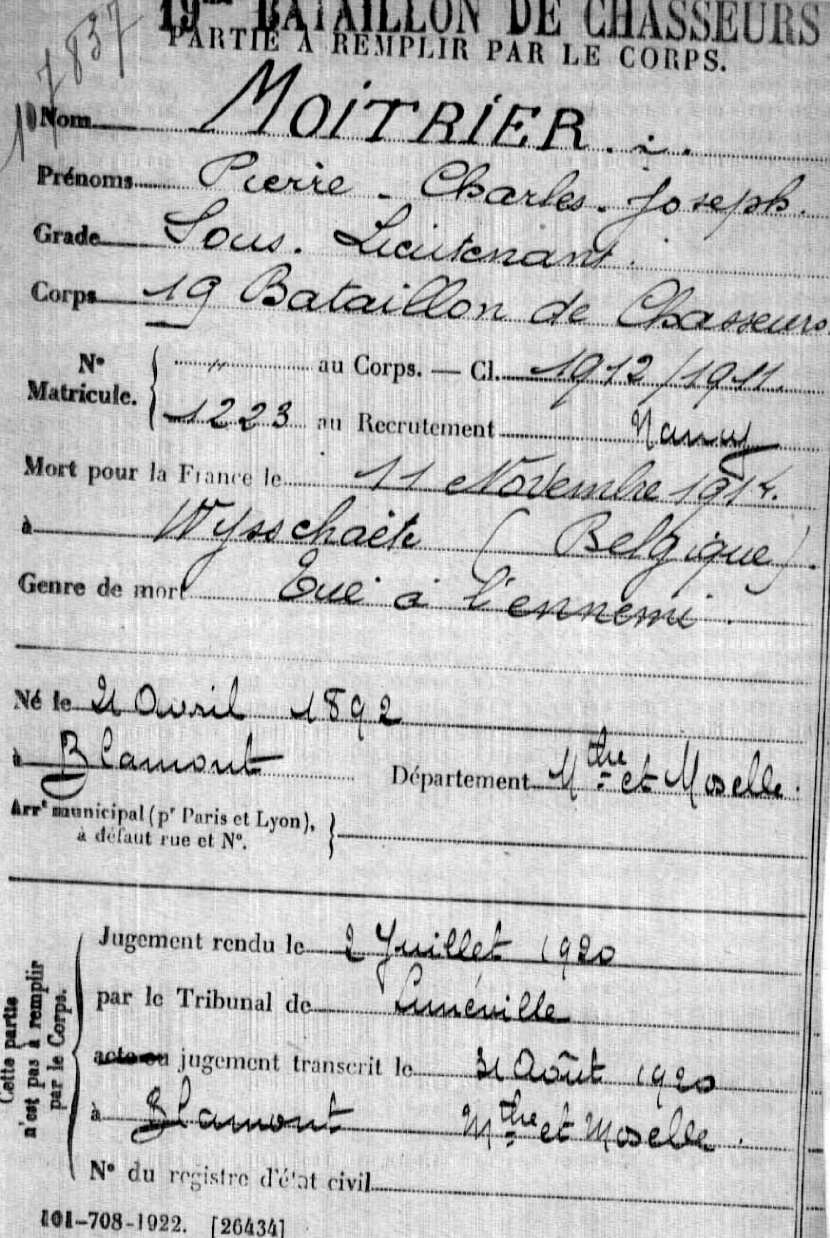 19me BATAILLON DE CHASSEURS
PARTIE À REMPLIR PAR LE CORPS.
7837
Nom MOITRIER.
Prénoms Pierre - Charles - Joseph.
Grade Sous. Lieutenant.
Corps 19 Bataillon de Chasseurs.
N° Matricule. { " au Corps. — Cl. 1912/1911.
1223 au Recrutement Nancy
Mort pour la France le 11 Novembre 1914.
à Wysschaëte (Belgique).
Genre de mort Tué à l'ennemi.
Né le 21 Avril 1892
à Blamont Département Mthe et Moselle.
Arrt municipal (pr Paris et Lyon), à défaut rue et N°. }
Cette partie n'est pas à remplir par le Corps.
Jugement rendu le 2 Juillet 1920
par le Tribunal de Lunéville
acte ou jugement transcrit le 31 Août 1920
à Blamont Mthe et Moselle.
N° du registre d'état civil
101-708-1922. [26434]